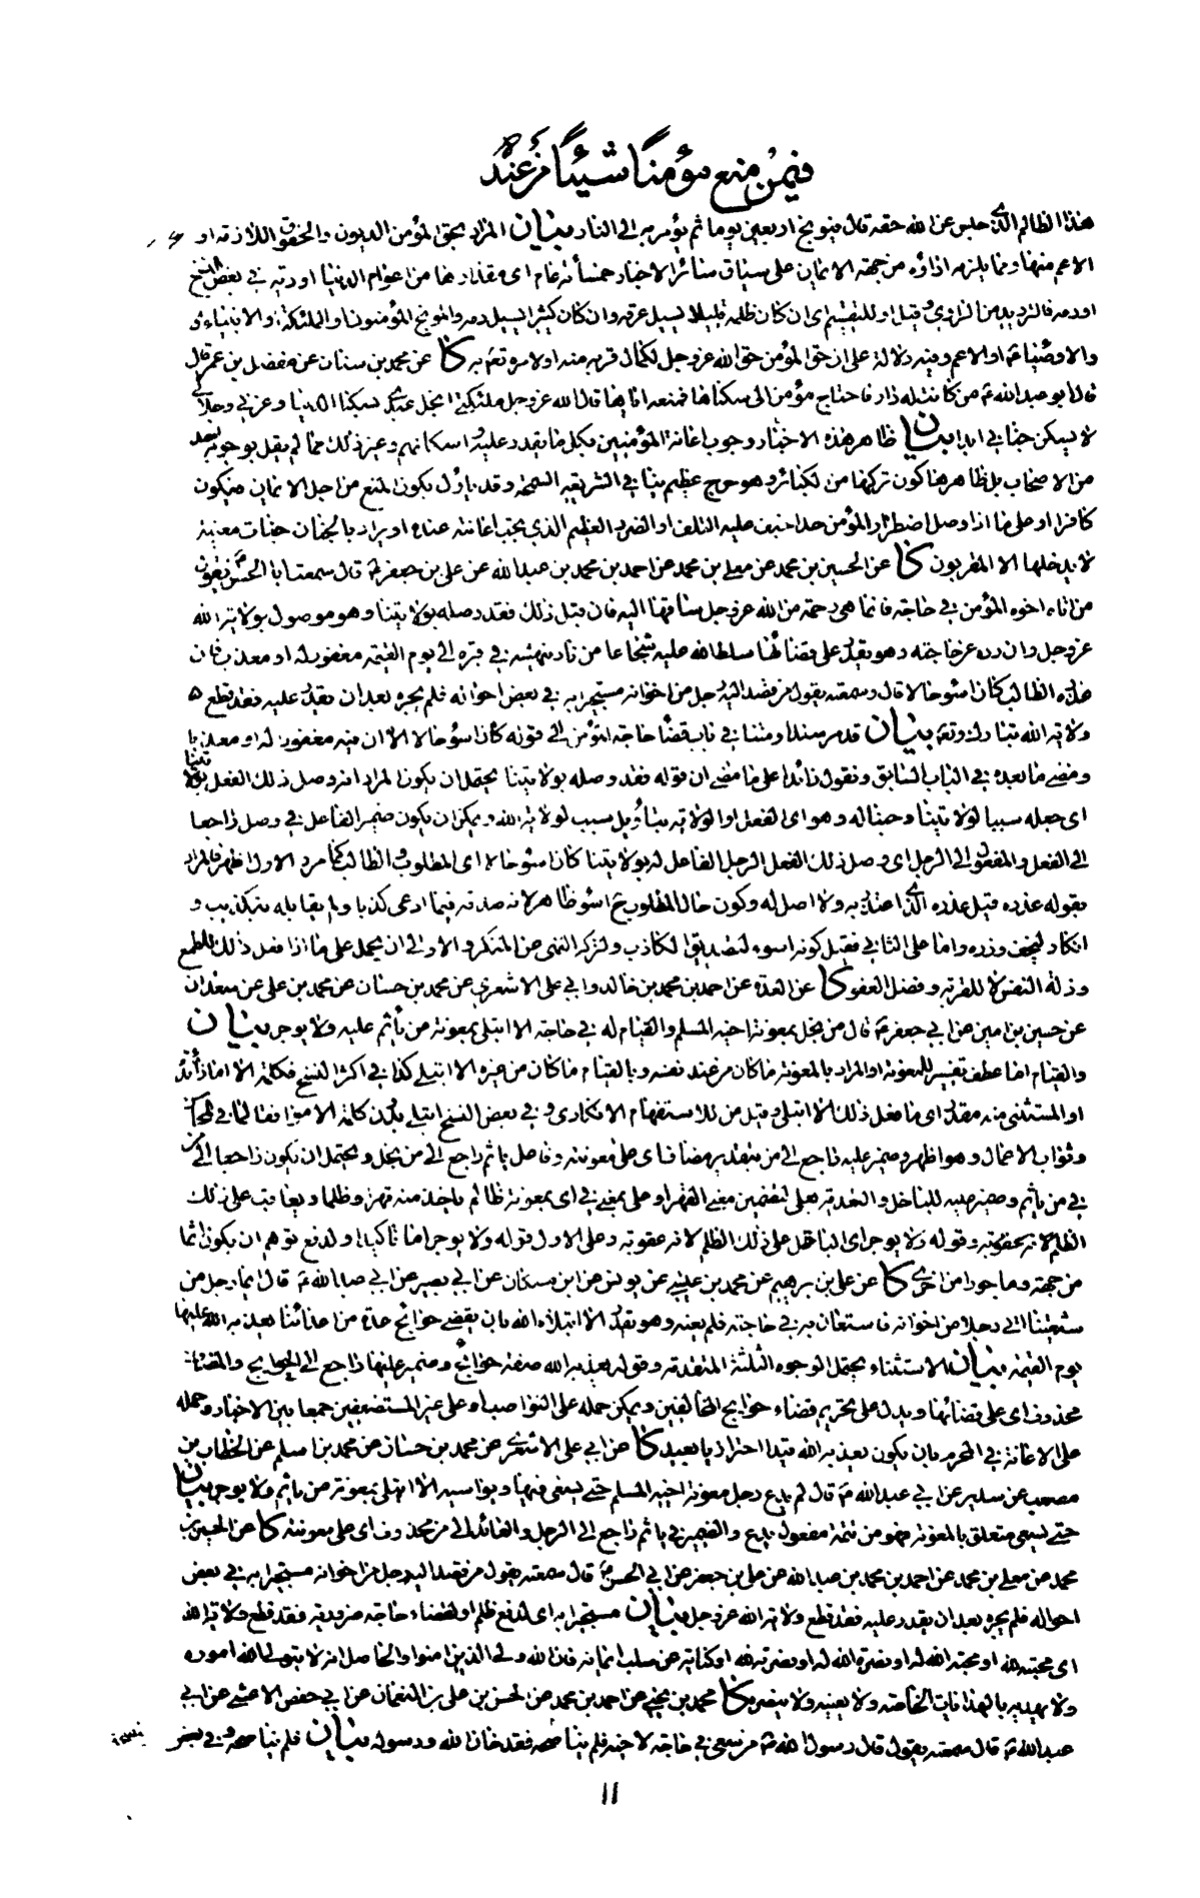 فيمن منع مؤمنا شيئا من عنده
هذا الظالم الذي حبس عن الله حقه قال فيوبخ اربعين يوما ثم يؤمر به الى النار بيان المراد بحق المؤمن الديون والحقوق اللازمة او
الاعم منها ومما يلزمه اداؤه من جهة الايمان على سياق سائر الاخبار خمسمأة عام اى مقدارها من اعوام الدنيا او دية في بعض النسخ
او دمه فالترديد من الراوي وقيل او للتقسيم اى ان كان ظلمه قليلا يسيل عرقه وان كان كثيرا يسيل دمه والموبخ المؤمنون او الملئكة او الانبياء و
والاوصياء ع او الاعم وفيه دلالة على ان حق المؤمن حق الله عز وجل لكمال قربه منه او لامره تع به كا عن محمد بن سنان عن مفضل بن عمر قال
قال ابو عبد الله ع من كانت له دار فاحتاج مؤمن الى سكناها فمنعه اياها قال الله عز وجل ملئكتي ابخل عبدي على عبدي بسكنا الدنيا وعزتي وجلالي
لا يسكن جناني ابدا بيان ظاهر هذه الاخبار وجوب اعانة المؤمنين بكل ما يقدر عليه واسكانهم وغير ذلك مما لم يقل بوجوبه احد
من الاصحاب بل ظاهرها كون تركها من الكبائر وهو حرج عظيم ينافي الشريعة السمحة وقد يأول بكون المنع من اجل الايمان فيكون
كافرا او على ما اذا وصل اضطرار المؤمن حدا خيف عليه التلف او الضرر العظيم الذي يجب اعانته عنده او يراد بالجنان جنات معينة
لا يدخلها الا المقربون كا عن الحسين بن محمد عن معلى بن محمد عن احمد بن محمد بن عبد الله عن علي بن جعفر ع قال سمعت ابا الحسن ع يقول
من اتاه اخوه المؤمن في حاجة فانما هي رحمة من الله عز وجل ساقها اليه فان قبل ذلك فقد وصله بولايتنا وهو موصول بولاية الله
عز وجل وان رده عن حاجته وهو يقدر على قضائها سلط الله عليه شجاعا من نار ينهشه في قبره الى يوم القيمة مغفور له او معذب فان
عذره الطالب كان اسوء حالا قال وسمعته يقول من قصد اليه رجل من اخوانه مستجيرا به في بعض احواله فلم يجره بعد ان يقدر عليه فقد قطع
ولاية الله تبارك وتع بيان قد مر سندا ومتنا في باب قضاء حاجة المؤمن الى قوله كان اسوء حالا الا ان فيه مغفورا له او معذبا
ومضى ما بعده في الباب السابق ونقول زائدا على ما مضى ان قوله فقد وصله بولايتنا يحتمل ان يكون المراد انه وصل ذلك الفعل بولايتنا
اى جعله سببا لولايتنا وحبنا له وهو اى الفعل او الولاية بتأويل سبب لولاية الله ويمكن ان يكون ضمير الفاعل في وصل راجعا
الى الفعل والمفعول الى الرجل اى وصل ذلك الفعل الرجل الفاعل له بولايتنا كان اسوء حالا اى المطلوب او الطالب كما مر والاول اظهر فالمراد
بقوله عذره قبل عذره الذي اعتذر به ولا اصل له وكون حال المطلوب ح اسوء ظاهر لانه صدقه فيما ادعى كذبا ولم يقابله بتكذيب و
انكار ليخف وزره واما على الثاني فقيل كونه اسوء لتصديق الكاذب ولتركه النهي عن المنكر والاولى ان يحمل على ما اذا فعل ذلك للطمع
وذلة النفس لا للقربة وفضل العفو كا عن العدة عن احمد بن محمد بن خالد وابي علي الاشعري عن محمد بن حسان عن محمد بن علي عن سعدان
عن حسين بن امين عن ابي جعفر ع قال من بخل بمعونة اخيه المسلم والقيام له في حاجته الا ابتلى بمعونة من يأثم عليه ولا يوجر بيان
والقيام اما عطف تفسير للمعونة او المراد بالمعونة ما كان من عند نفسه وبالقيام ما كان من غيره الا ابتلي كذا في اكثر النسخ فكلمة الا اما زائدة
او المستثنى منه مقدر اى ما فعل ذلك الا ابتلي وقيل من للاستفهام الانكاري وفي بعض النسخ ابتلي بدون كلمة الا موافقا لما في المحاسن
وثواب الاعمال وهو اظهر وضمير عليه راجع الى من بتقدير مضاف اى على معونته وفاعل يأثم راجع الى من بخل ويحتمل ان يكون راجعا الى من
في من يأثم وضمير عليه للباخل والتعدية بعلى لتضمين معنى القهر او على بمعنى في اى بمعونة ظالم يأخذ منه قهرا وظلما ويعاقب على ذلك
الظلم لانه بحقوقه وقوله ولا يوجر اى الباخل على ذلك الظلم لانه عقوبة وعلى الاول قوله ولا يوجر اما تأكيد او لدفع توهم ان يكون اثما
من جهة وماجورا من اخرى كا عن علي بن ابرهيم عن محمد بن عيسى عن يونس عن ابن مسكان عن ابي بصير عن ابي عبد الله ع قال ايما رجل من
شيعتنا اتى رجلا من اخوانه فاستعان به في حاجته فلم يعنه وهو يقدر الا ابتلاه الله بان يقضي حوائج عدة من اعدائنا يعذبه الله عليها
يوم القيمة بيان الاستثناء يحتمل الوجوه الثلثة المتقدمة وقوله يعذبه الله صفة حوائج وضمير عليها راجع الى الحوائج والمضاف
محذوف اى على قضائها ويدل على تحريم قضاء حوائج المخالفين ويمكن حمله على النواصب او على غير المستضعفين جمعا بين الاخبار وحمله
على الاعانة في المحرم بان يكون يعذبه الله قيدا احترازيا بعيد كا عن ابي علي الاشعري عن محمد بن حسان عن محمد بن اسلم عن الخطاب بن
مصعب عن سدير عن ابي عبد الله ع قال لم يدع رجل معونة اخيه المسلم حتى يسعى فيها ويواسيه الا ابتلي بمعونة من يأثم ولا يوجر بيان
حتى يسعى متعلق بالمعونة فهو من تتمة مفعول يدع والضمير في يأثم راجع الى الرجل والعائد الى من محذوف اى على معونته كا عن الحسين بن
محمد عن معلى بن محمد عن احمد بن محمد بن عبد الله عن علي بن جعفر عن ابي الحسن ع قال سمعته يقول من قصد اليه رجل من اخوانه مستجيرا به في بعض
احواله فلم يجره بعد ان يقدر عليه فقد قطع ولاية الله عز وجل بيان مستجيرا به اى لدفع ظلم او لقضاء حاجة ضرورية فقد قطع ولاية الله
اى محبته لله او محبة الله له او نصرة الله له او نصرته لله او كناية عن سلب ايمانه فان الله ولي الذين امنوا والحاصل انه لا يتولى الله اموره
ولا يهديه بالهدايات الخاصة ولا يعينه ولا ينصره كا محمد بن يحيى عن احمد بن محمد عن الحسن بن علي بن النعمان عن ابي حفص الاعشى عن ابي
عبد الله ع قال سمعته يقول قال رسول الله ص من سعى في حاجة لاخيه فلم يناصحه فقد خان الله ورسوله بيان فلم يناصحه وفي بعض
١١